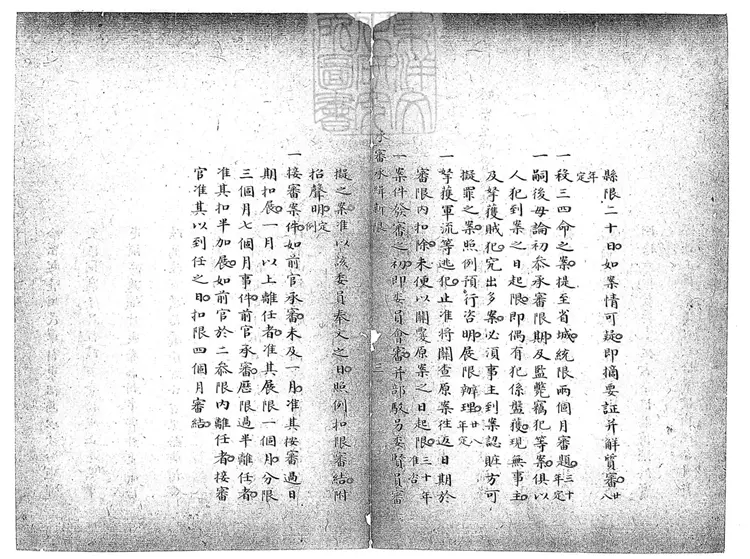 縣限二十日如案情可疑即摘要証并解質審廿八
年定
一殺三四命之案提至省城統限兩個月審題三十年定
一嗣後毋論初叅承審限期及監斃竊犯等案俱以
人犯到案之日起限即偶有犯係盤獲現無事主
及拏獲賊犯究出多案必須事主到案認賍方可
擬罪之案照例預行咨明展限辦理廿八年定
一拏獲軍流等逃犯止准將關查原案往返日期於
審限内扣除未便以關覆原案之日起限三十年
一案件發審之初即委員會審并部駁另委賢員審
承審承緝新限
擬之案准以該委員奉文之日照例扣限審結附
招聲明定例
一接審案件如前官承審未及一月准其按審過日
期扣展一月以上離任者准其展限一個月分限
三個月七個月事件前官承審歷限過半離任者
准其扣半加展如前官於二叅限内離任者接審
官准其以到任之日扣限四個月審結